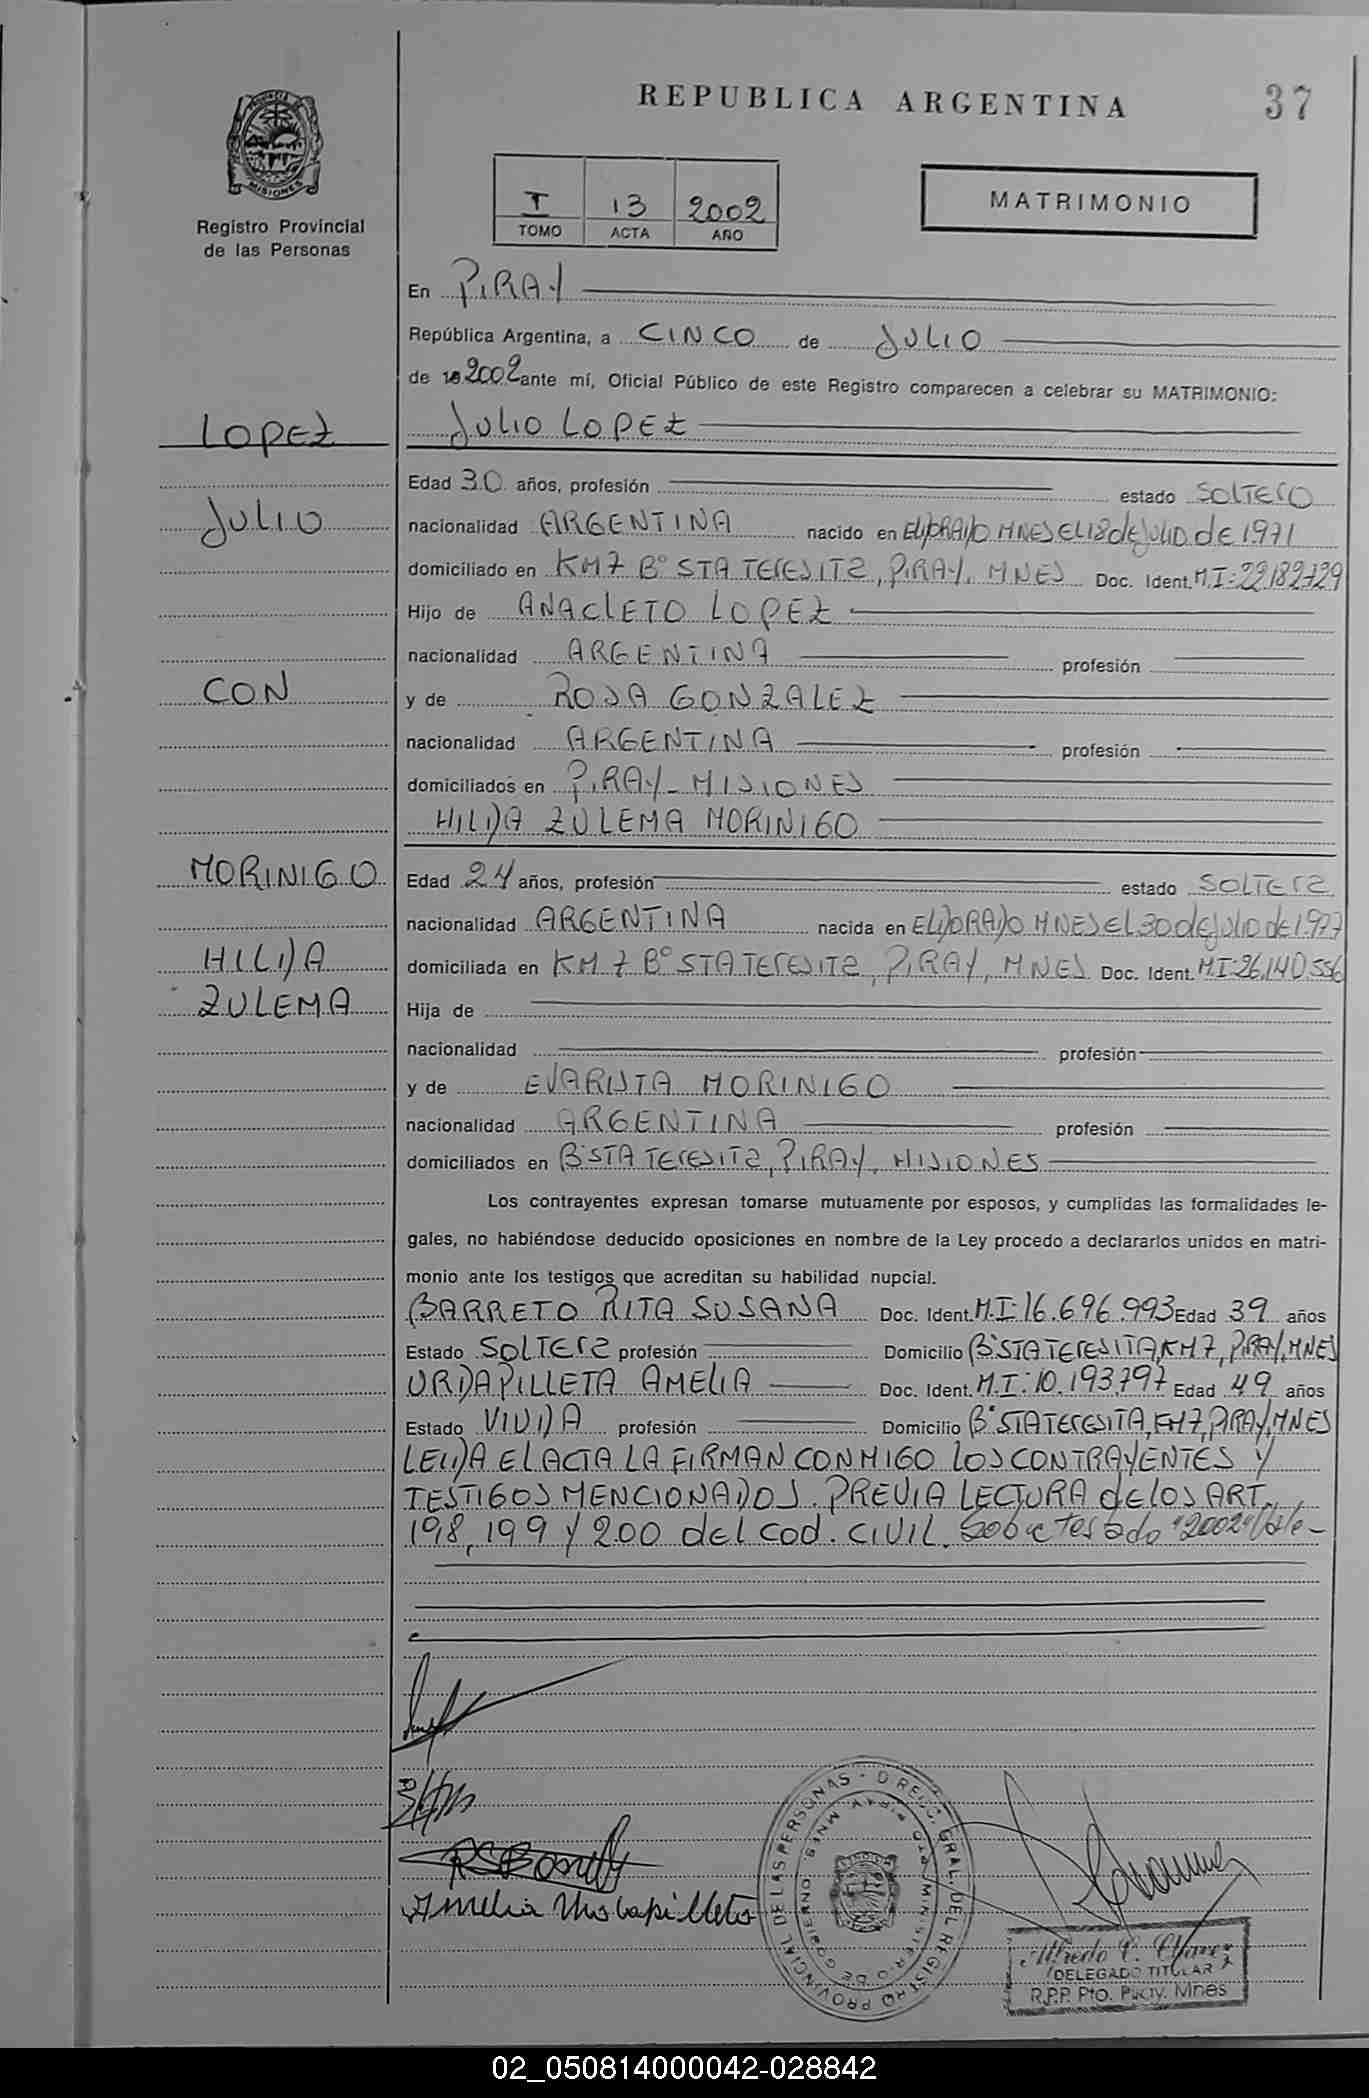 REPUBLICA ARGENTINA
37
PROVINCIA DE
MISIONES
Registro Provincial
de las Personas
I 13 2002
TOMO ACTA AÑO
MATRIMONIO
En PIRAY
República Argentina, a CINCO de JULIO
de 19 2002 ante mí, Oficial Público de este Registro comparecen a celebrar su MATRIMONIO:
LOPEZ
JULIO
CON
MORINIGO
HILDA
ZULEMA
JULIO LOPEZ
Edad 30 años, profesión estado SOLTERO
nacionalidad ARGENTINA nacido en ELDORADO MNES EL 18 de JULIO de 1971
domiciliado en KM 7 Bº STA TERESITA, PIRAY, MNES Doc. Ident. M.I: 22.182.729
Hijo de ANACLETO LOPEZ
nacionalidad ARGENTINA profesión
y de ROSA GONZALEZ
nacionalidad ARGENTINA profesión
domiciliados en PIRAY - MISIONES
HILDA ZULEMA MORINIGO
Edad 24 años, profesión estado SOLTERA
nacionalidad ARGENTINA nacida en ELDORADO MNES EL 30 de JULIO de 1977
domiciliada en KM 7 Bº STA TERESITA, PIRAY, MNES Doc. Ident. M.I: 26.140.556
Hija de
nacionalidad profesión
y de EVARISTA MORINIGO
nacionalidad ARGENTINA profesión
domiciliados en Bº STA TERESITA, PIRAY, MISIONES
Los contrayentes expresan tomarse mutuamente por esposos, y cumplidas las formalidades le-
gales, no habiéndose deducido oposiciones en nombre de la Ley procedo a declararlos unidos en matri-
monio ante los testigos que acreditan su habilidad nupcial.
BARRETO RITA SUSANA Doc. Ident. M.I: 16.696.993 Edad 39 años
Estado SOLTERA profesión Domicilio Bº STA TERESITA, KM 7, PIRAY, MNES
URDAPILLETA AMELIA Doc. Ident. M.I: 10.193.797 Edad 49 años
Estado VIUDA profesión Domicilio Bº STA TERESITA, KM 7, PIRAY, MNES
LEIDA EL ACTA LA FIRMAN CONMIGO LOS CONTRAYENTES Y
TESTIGOS MENCIONADOS. PREVIA LECTURA de LOS ART.
198, 199 Y 200 del Cod. CIVIL. Sobre testado "2002" Vale -
Amelia Urdapilleta
DIREC. GRAL. DEL REGISTRO PROVINCIAL DE LAS PERSONAS
MINISTERIO DE GOBIERNO
PTO PIRAY MNES
Alfredo C. Chavez
DELEGADO TITULAR
R.P.P. Pto. Piray. Mnes
02_050814000042-028842